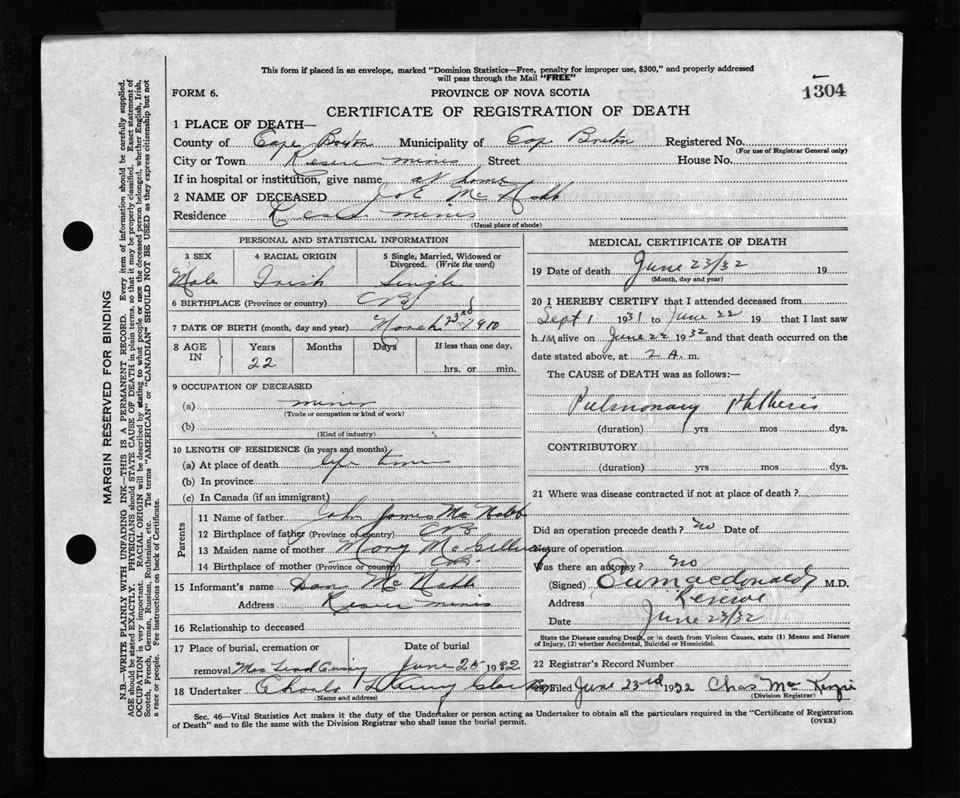 This form if placed in an envelope, marked "Dominion Statistics—Free, penalty for improper use, $300," and properly addressed
will pass through the Mail "FREE"
FORM 6.
PROVINCE OF NOVA SCOTIA
1304
CERTIFICATE OF REGISTRATION OF DEATH
1 PLACE OF DEATH—
County of Cape Breton Municipality of Cap Breton Registered No.
(For use of Registrar General only)
City or Town Reserve mines Street House No.
If in hospital or institution, give name at home
2 NAME OF DECEASED Joe Mc Nabb
Residence mines
(Usual place of abode)
PERSONAL AND STATISTICAL INFORMATION
3 SEX 4 RACIAL ORIGIN 5 Single, Married, Widowed or Divorced. (Write the word)
Male Irish Single
6 BIRTHPLACE (Province or country) CB
7 DATE OF BIRTH (month, day and year) March 23rd 1910
8 AGE IN Years Months Days If less than one day,
22 hrs. or min.
9 OCCUPATION OF DECEASED
(a) miner
(Trade or occupation or kind of work)
(b)
(Kind of industry)
10 LENGTH OF RESIDENCE (in years and months)
(a) At place of death life time
(b) In province
(c) In Canada (if an immigrant)
Parents
11 Name of father John James Mc Nabb
12 Birthplace of father (Province or country) CB
13 Maiden name of mother Mary
14 Birthplace of mother (Province or country) CB.
15 Informant's name Dan Mc Nabb
Address Reserve mines
16 Relationship to deceased
17 Place of burial, cremation or Date of burial
removal June 25 1932
18 Undertaker
(Name and address)
MEDICAL CERTIFICATE OF DEATH
19 Date of death June 23/32 19
(Month, day and year)
20 I HEREBY CERTIFY that I attended deceased from
Sept 1 1931 to June 22 19 that I last saw
h im alive on June 22 1932 and that death occurred on the
date stated above, at 2 A. m.
The CAUSE of DEATH was as follows:—
Pulmonary Phthesis
(duration) yrs mos dys.
CONTRIBUTORY
(duration) yrs. mos. dys.
21 Where was disease contracted if not at place of death?
Did an operation precede death? no Date of
Nature of operation
Was there an autopsy? no
(Signed) macdonald M.D.
Address Reserve
Date June 23/32
State the Disease causing Death, or in death from Violent Causes, state (1) Means and Nature
of Injury, (2) whether Accidental, Suicidal or Homicidal.
22 Registrar's Record Number
Filed June 23rd 1932 Chas Mc Kenzie
(Division Registrar)
Sec. 46—Vital Statistics Act makes it the duty of the Undertaker or person acting as Undertaker to obtain all the particulars required in the "Certificate of Registration
of Death" and to file the same with the Division Registrar who shall issue the burial permit.
(OVER)
MARGIN RESERVED FOR BINDING
N.B.—WRITE PLAINLY WITH UNFADING INK—THIS IS A PERMANENT RECORD. Every item of information should be carefully supplied.
AGE should be stated EXACTLY. PHYSICIANS should STATE CAUSE OF DEATH in plain terms, so that it may be properly classified. Exact statement of
OCCUPATION is very important. RACIAL ORIGIN will be described by stating to what people or race the deceased person belonged, whether English, Irish,
Scotch, French, German, Russian, Ruthenian, etc. The terms "AMERICAN" or "CANADIAN" SHOULD NOT BE USED as they express citizenship but not
a race or people. See instructions on back of Certificate.